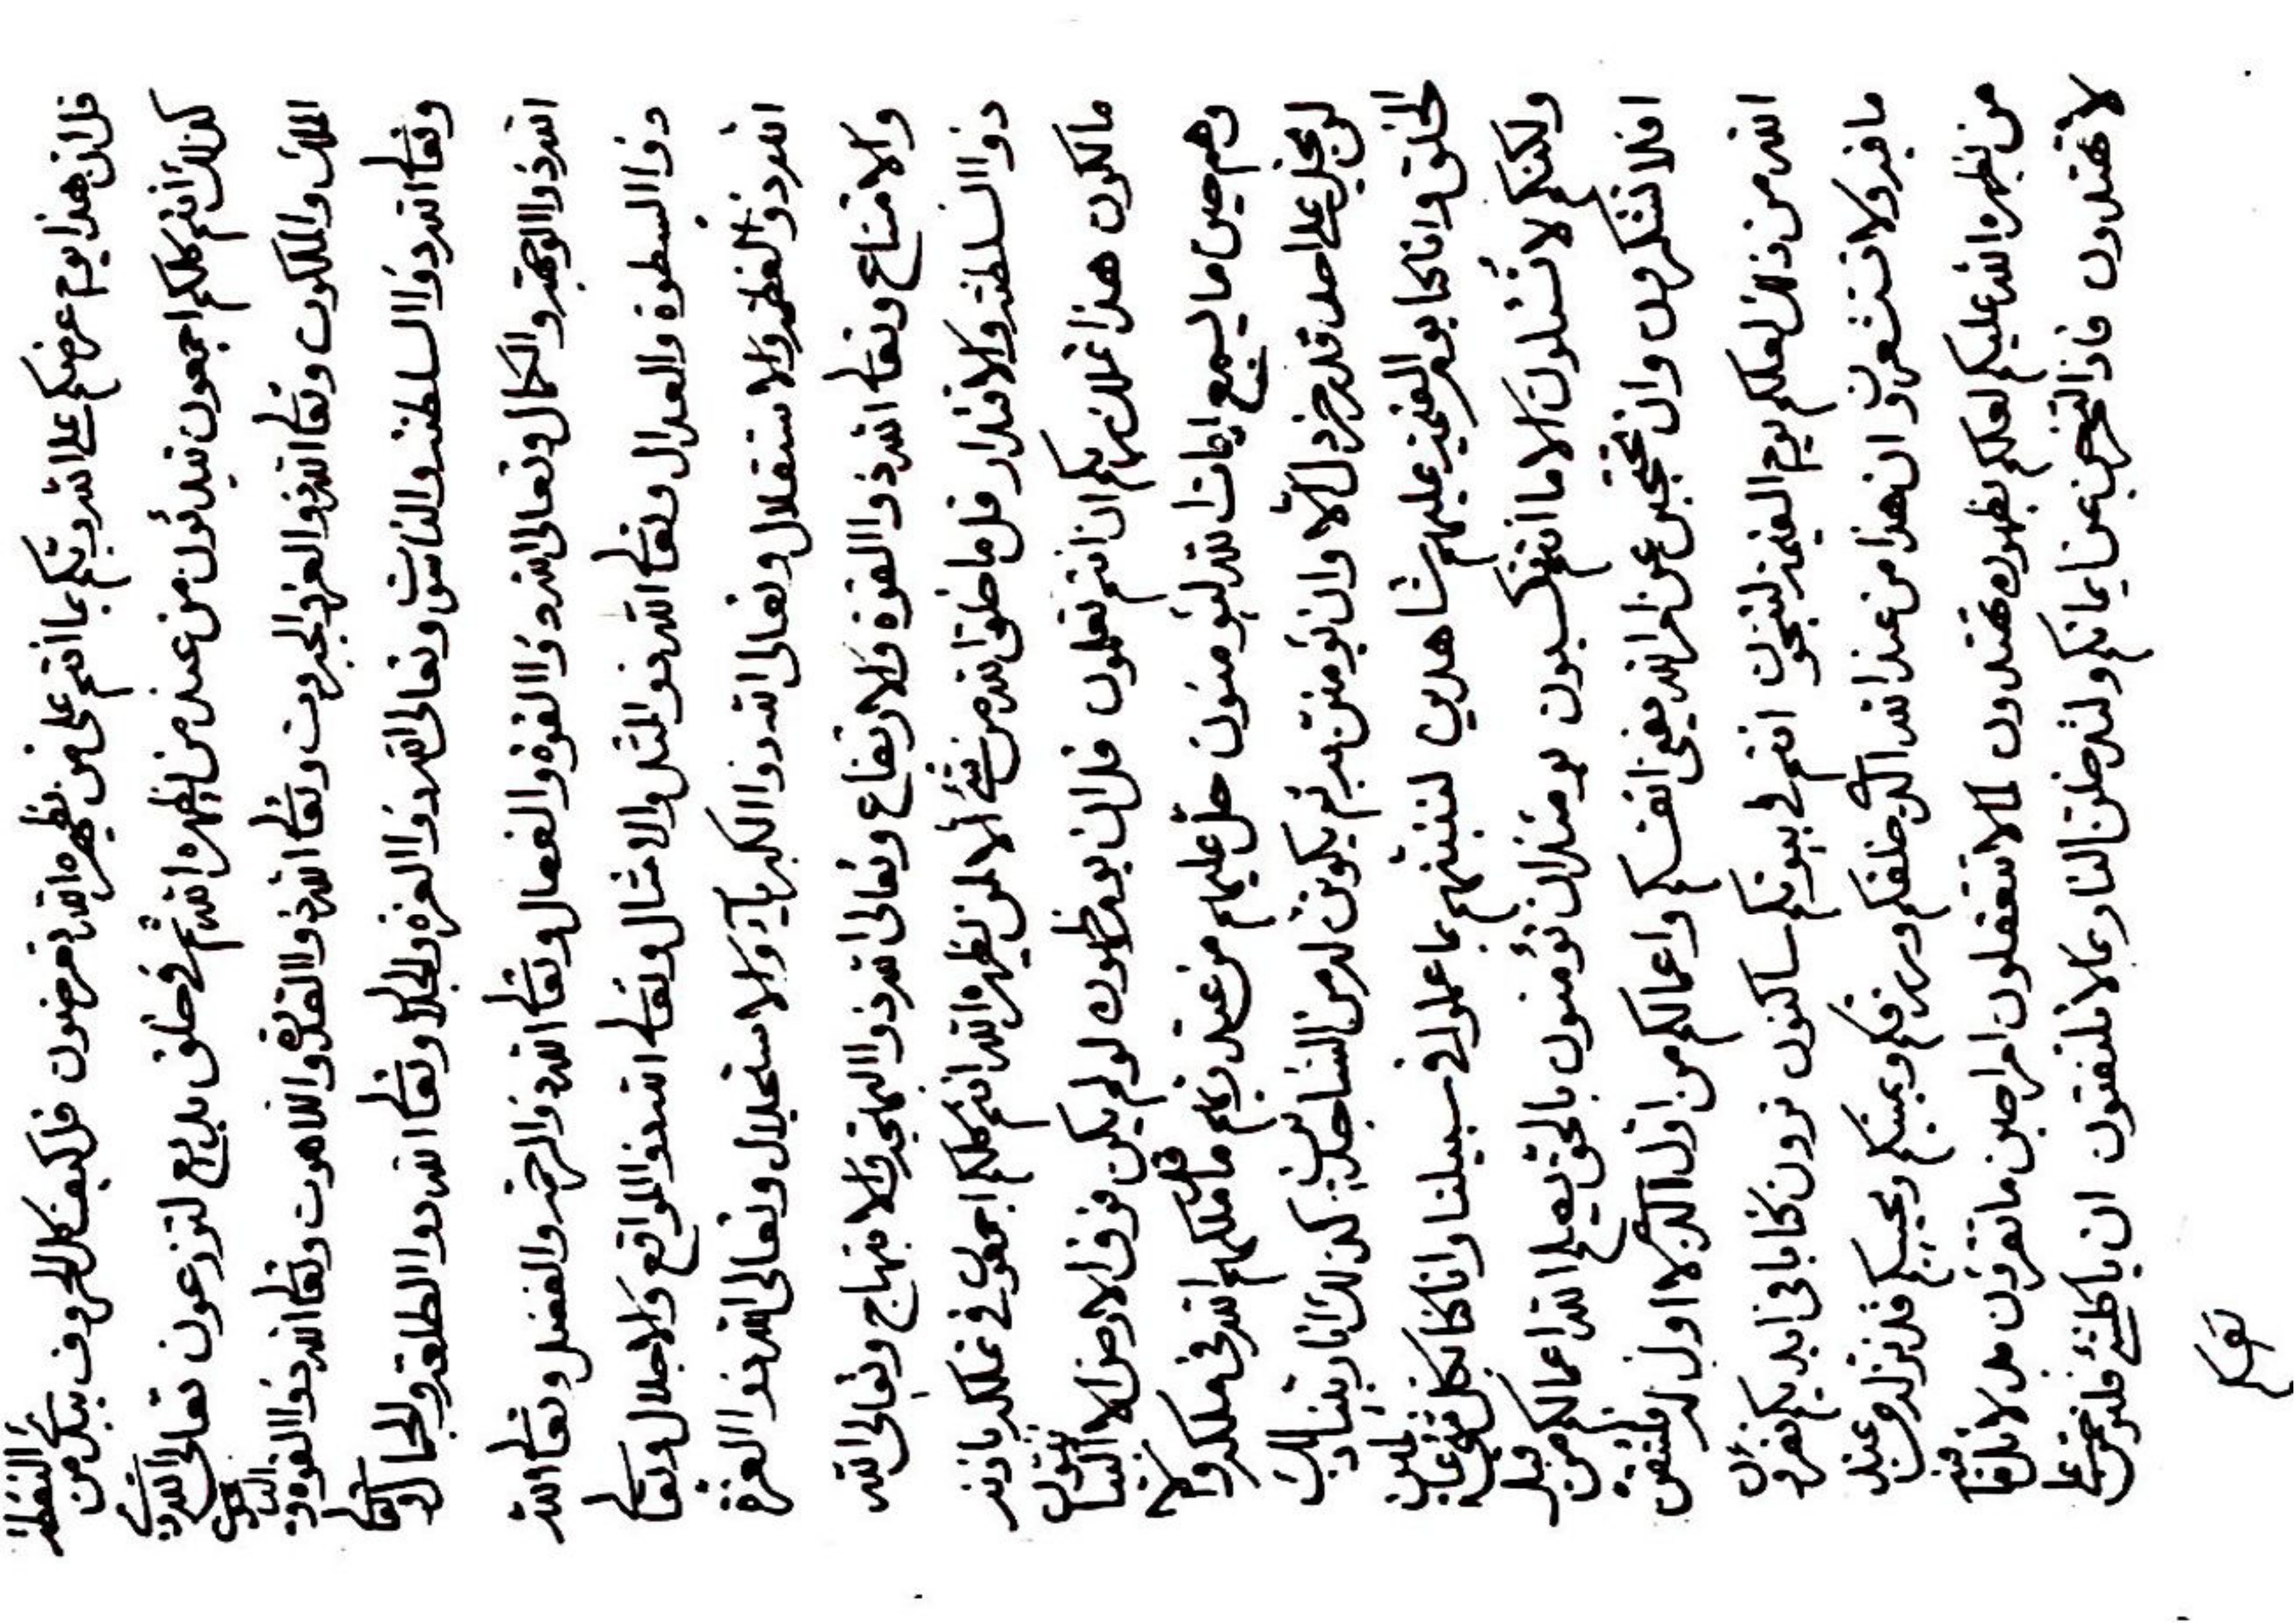 قل ان هذا يوم عرضكم على الله ربكم بما انتم على من يظهره الله تعرضون قل كيف كل الحروف من النقطة
كذلك انتم كلكم اجمعون تبدئون من عند من يظهره الله ثم في خلق بديع لتزرعون تعالى الله
الملك والملكوت وتعا الله ذو العز والجبروت وتعا الله ذو القدرة واللاهوت وتعا الله ذو القوة والياقوت
وتعا الله ذو السلطنة والناسوت وتعالى الله ذو العزة والجلال وتعا الله ذو الطلعة والجمال وتعا
الله ذو الوجهة والكمال وتعالى الله ذو القوة والفعال وتعا الله ذو الرحمة والفضل وتعا الله
ذو السطوة والعدال وتعا الله ذو المثل والامثال وتعا الله ذو المواقع والاجلال وتعا
الله ذو العظمة والاستقلال وتعالى الله ذو الكبرياء والاستجلال وتعالى الله ذو العزة
والامتناع وتعا الله ذو القوة والارتفاع وتعالى الله ذو البهجة والابتهاج وتعالى الله
ذو السلطنة والاقتدار قل ما خلق الله من شئ الا لمن يظهره الله انتم كلكم اجمعون في مملكته باذنه
مالكون هذا ان انتم تعلمون قل ان يوم ظهوره لو لم يكن فوق الارض الا البيانيون
وهم حين ما يسمع ايات الله ليؤمنون حل عليهم من عند ربهم ما قد ملكهم الله في ملكه والا
لن يحل على احد قدر خردل الا وان يؤمنن به ثم يكونن له من الساجدين كذلك انا ربينا ذلك
الخلق وانا كنا يوم القيمة عليهم شاهدين لننبئنهم بما عملوا في سبيلنا وانا كنا بكل شئ عالمين
ولكنكم لا تسئلون الا ما انتم تكسبون يومئذ ان تؤمنون بالحق يعلم الله اعمالكم من قبل
افلا تشكرون وان تحتجبن عن امر الله يفنى انفسكم واعمالكم من اول الذي لا اول له فلتتقن
الله من ذلك لعلكم يوم القيمة لتنجون انتم في بيوتكم ساكنون ترون كتابا في ايديكم تقرؤن
ما فيه ولا تستشعرون ان هذا من عند الله الذي خلقكم ورزقكم ويميتكم ويحييكم قد نزله من عنده
من يظهره الله عليكم لعلكم بظهوره تهتدون لما لا تتعقلون امرا حين ما تقرؤن بل لا فيه
لا تهتدون فاذا لتخرجن عن ايمانكم ولتدخلن النار بما لا تلتفتون ان يا كلشئ فلترحمن على